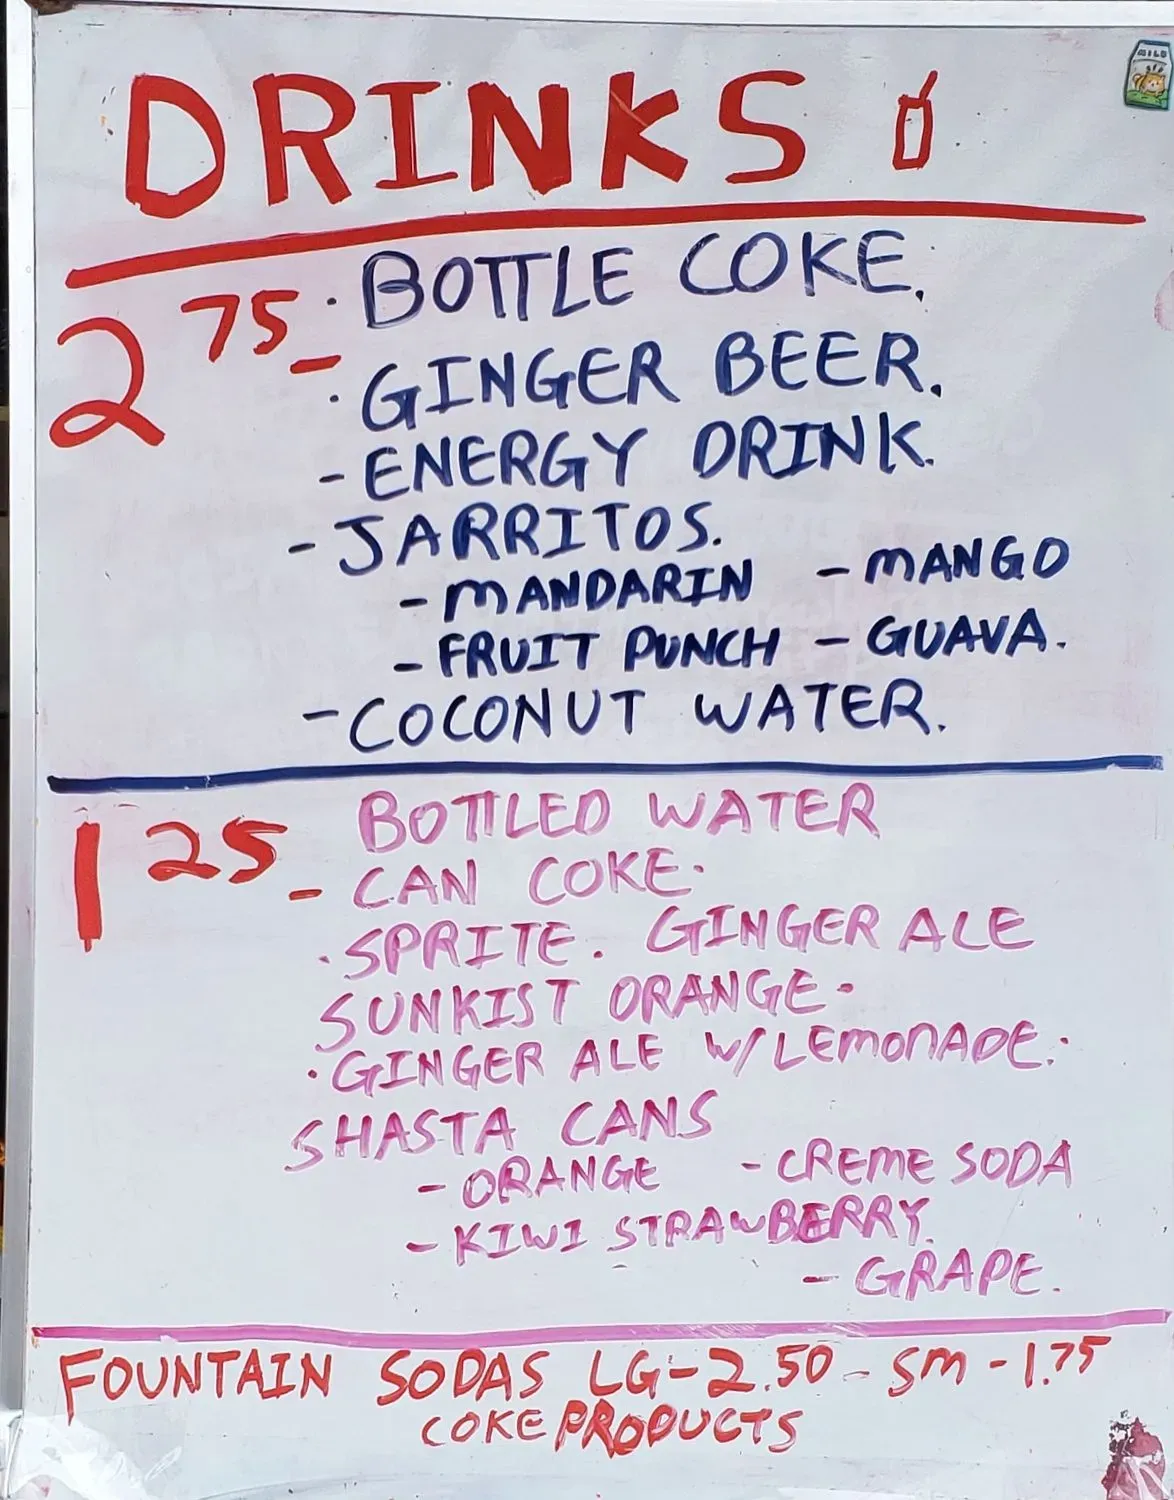 DRINKS
2 75 - · BOTTLE COKE.
· GINGER BEER.
- ENERGY DRINK.
- JARRITOS.
- MANDARIN - MANGO
- FRUIT PUNCH - GUAVA.
- COCONUT WATER.
1 25 - BOTTLED WATER
CAN COKE·
· SPRITE. GINGER ALE
SUNKIST ORANGE·
· GINGER ALE W/LEMONADE.·
SHASTA CANS
- ORANGE - CREME SODA
- KIWI STRAWBERRY.
- GRAPE.
FOUNTAIN SODAS LG-2.50 - SM - 1.75
COKE PRODUCTS
MILK